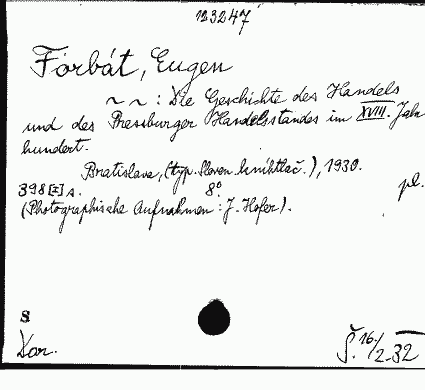 123247
Forbát, Eugen
~ ~ : Die Geschichte des Handels
und des Pressburger Handelsstandes im XVIII. Jahr
hundert.
Bratislava, (typ. Sloven. kníhtlač.), 1930.
398 [I] s. 8° pl.
(Photographische Aufnahmen : J. Hofer).
S
Dar.
Š. 16/2. 32